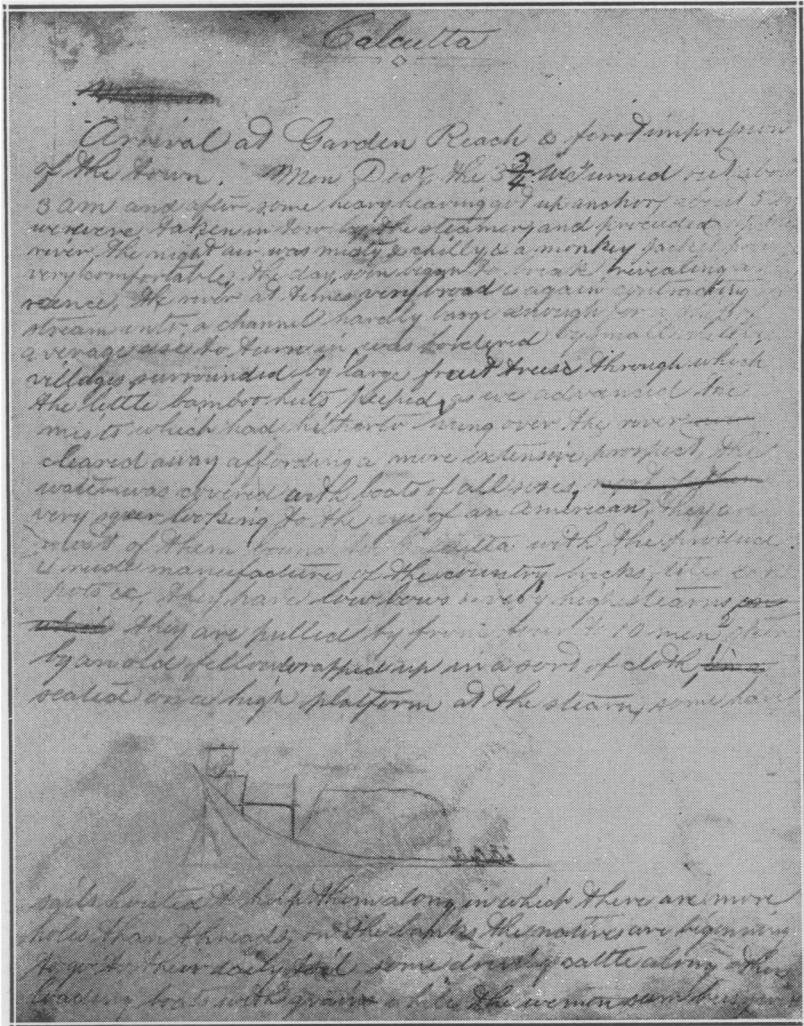 Calcutta
Arrival at Garden Reach & first impression
of the town. Mon Dect, the 3 3/4 We Turned out about
3 am and after some heavy heaving got up anchor, about 5
we were taken in tow by the steamer, and proceeded up the
river, the night air was misty & chilly & a monkey jacket
very comfortable, the day soon began to break revealing a
the river at times very broad & again contracting
stream into a channel hardly large enough for a ship of
average size to turn in, was bordered by small
villages surrounded by large fruit trees through which
the little bamboo huts peeped, as we advanced the
mists which had hitherto hung over the river
cleared away affording a more extensive prospect, the
water was covered with boats of all sizes,
very queer looking to the eye of an American, they are
most of them bound to Calcutta with the produce
& rude manufactures of the country, bricks, tiles
pots &c, they have low bows & very high stearns
they are pulled by from four to 10 men &
by an old fellow wrapped up in a sort of cloth,
seated on a high platform at the stearn, some have
sails hoisted to help them along in which there are more
holes than threads, on the banks the natives are beginning
to go to their daily toil some driving cattle along others
loading boats with grain while the women